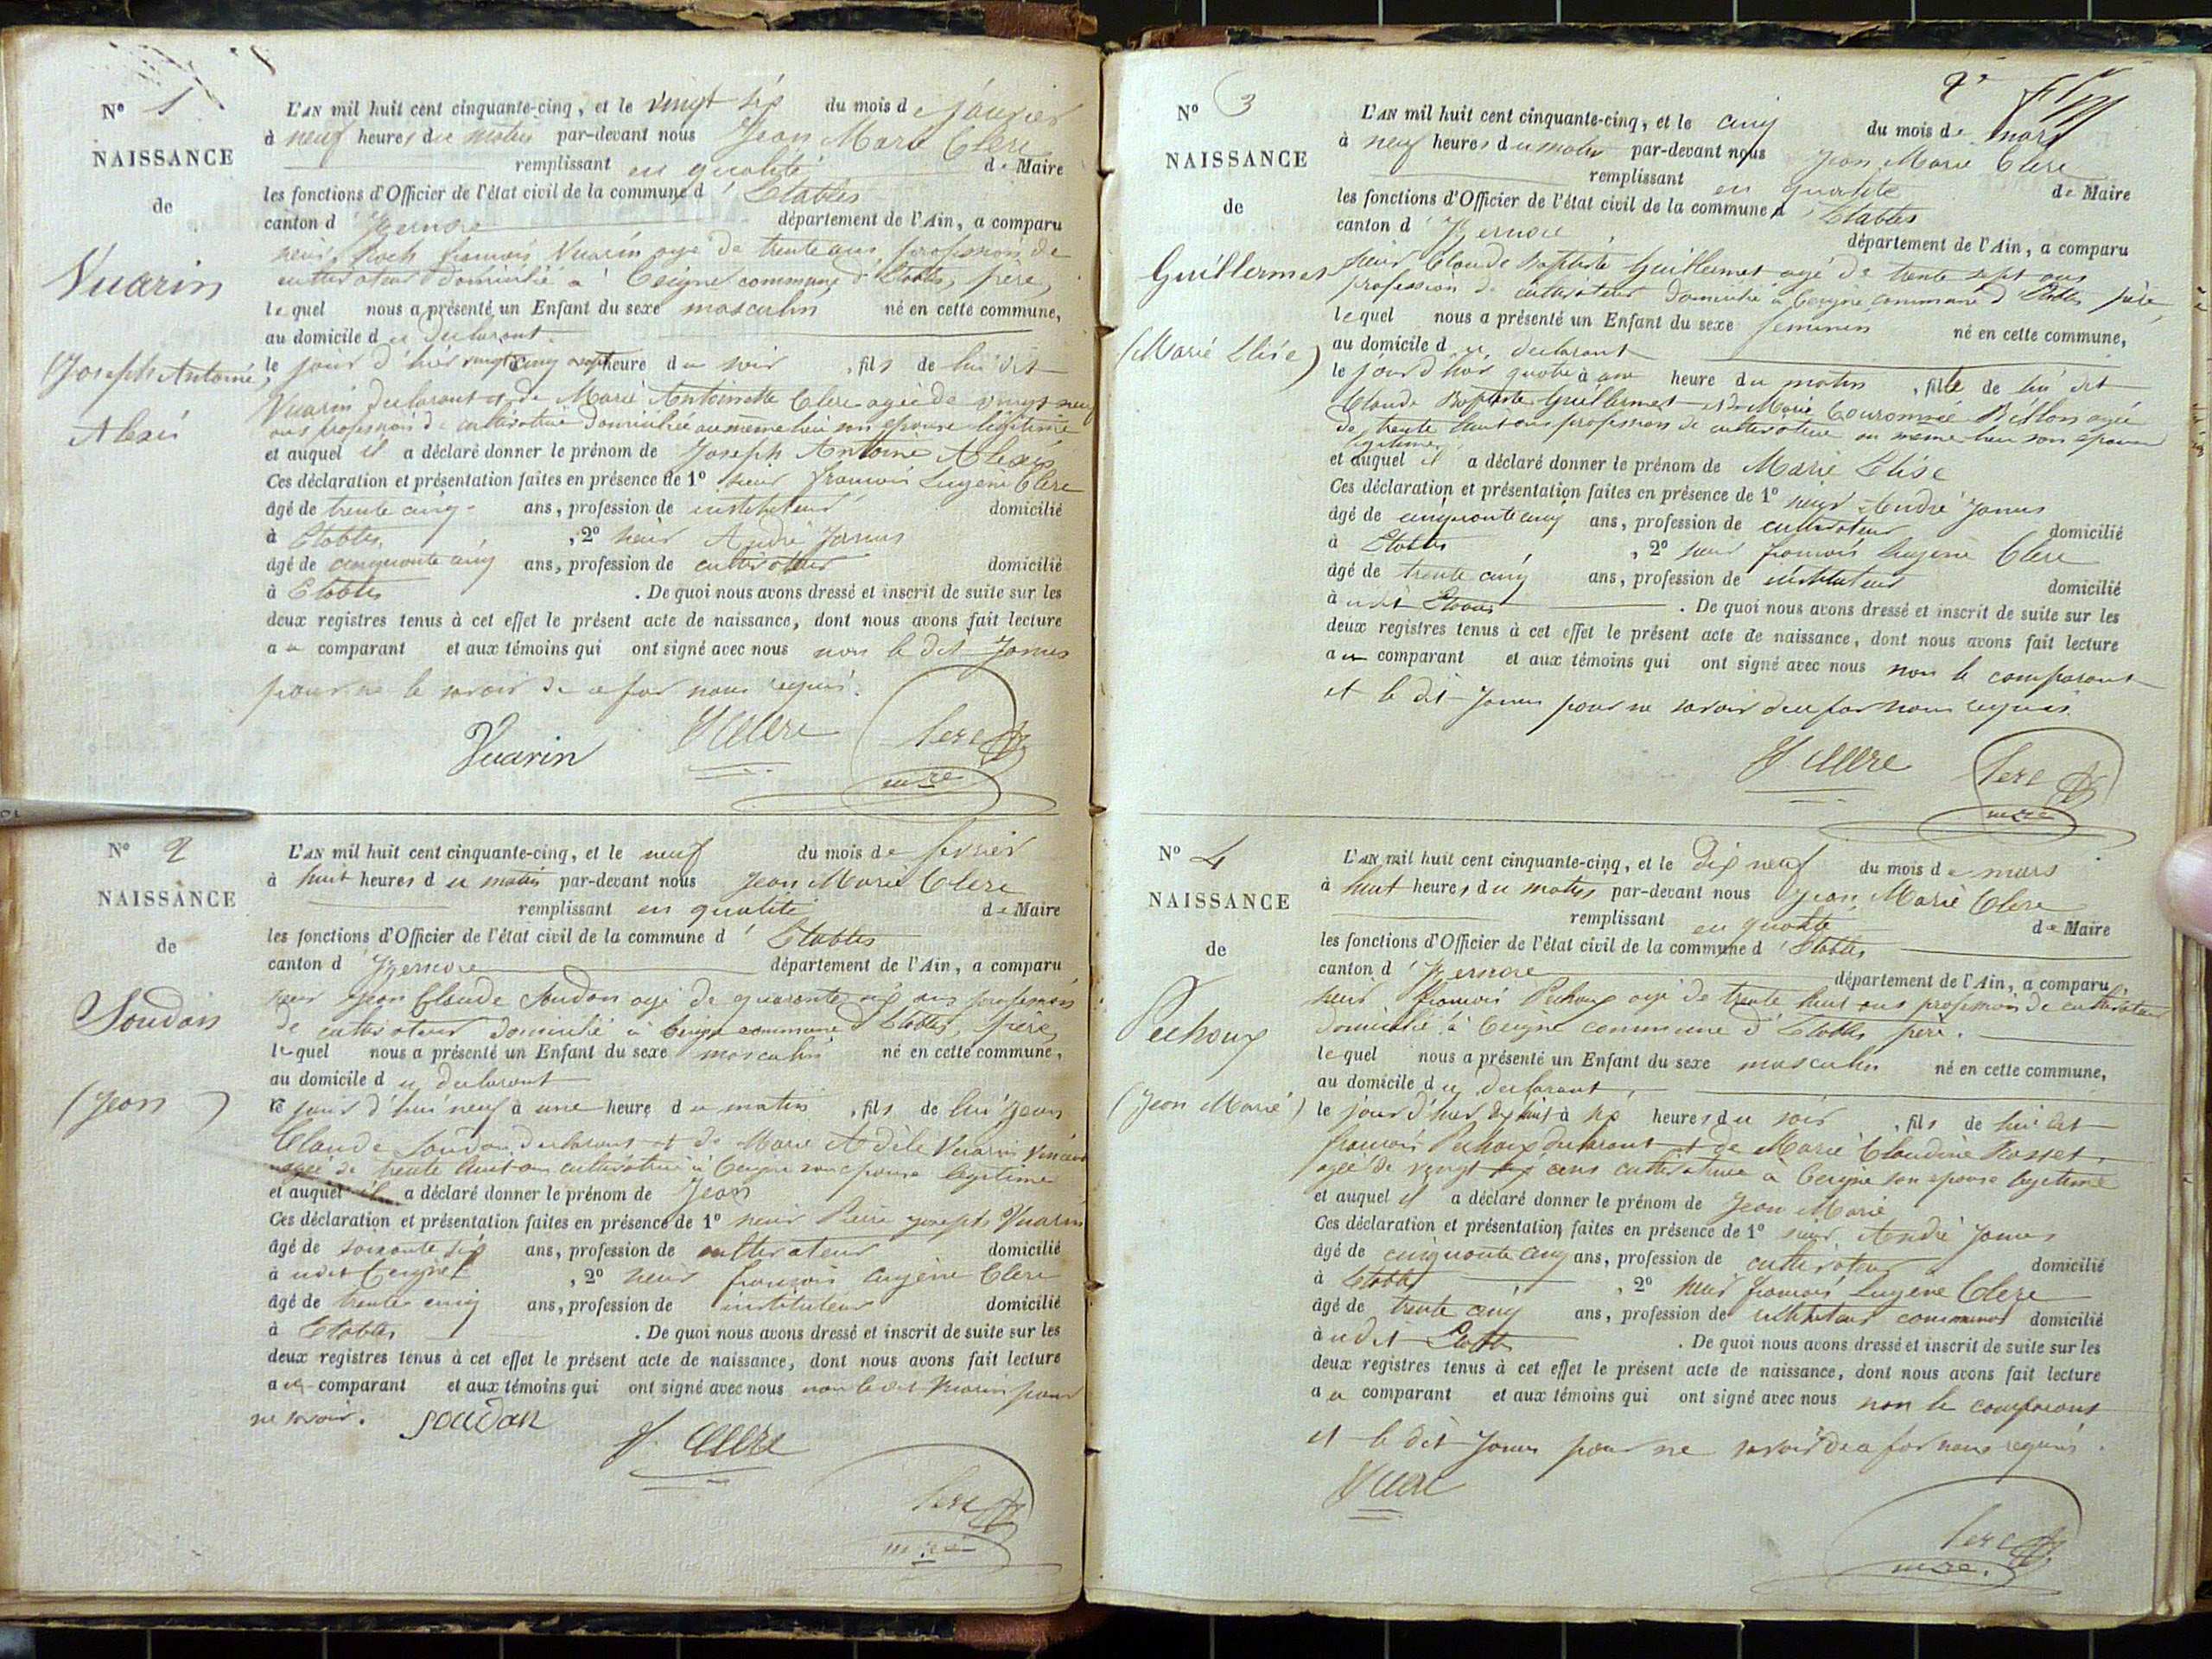 N° 1
NAISSANCE
de
Vuarin
(Joseph Antoine
Alexis
L'AN mil huit cent cinquante-cinq, et le vingt six du mois de janvier
à neuf heures du matin par-devant nous Jean Marie Clerc
remplissant en qualité de Maire
les fonctions d'Officier de l'état civil de la commune d'Etables
canton d'Izernore département de l'Ain, a comparu
sieur Roch françois Vuarin agé de trente ans, profession de
cultivateur domicilié à Ceignes commune d'Etables, père,
lequel nous a présenté un Enfant du sexe masculin né en cette commune,
au domicile du declarant
le jour d'hier vingt cinq heure du soir, fils de lui dit
Vuarin declarant et de Marie Antoinette Clerc agée de vingt neuf
ans profession de cultivatrice domiciliée au même lieu son epouse légitime
et auquel il a déclaré donner le prénom de Joseph Antoine Alexis
Ces déclaration et présentation faites en présence de 1° sieur françois Eugène Clerc
âgé de trente cinq ans, profession de instituteur domicilié
à Etables, 2° sieur André Janus
âgé de cinquante cinq ans, profession de cultivateur domicilié
à Etables. De quoi nous avons dressé et inscrit de suite sur les
deux registres tenus à cet effet le présent acte de naissance, dont nous avons fait lecture
au comparant et aux témoins qui ont signé avec nous non le dit Janus
pour ne le savoir de ce par nous requis.
Vuarin
Clerc
mre
N° 2
NAISSANCE
de
Soudan
(Jean)
L'AN mil huit cent cinquante-cinq, et le neuf du mois de fevrier
à huit heures du matin par-devant nous Jean Marie Clerc
remplissant en qualité de Maire
les fonctions d'Officier de l'état civil de la commune d'Etables
canton d'Izernore département de l'Ain, a comparu
sieur Jean Claude Soudan agé de quarante six ans profession
de cultivateur domicilié à Ceignes commune d'Etables, père,
lequel nous a présenté un Enfant du sexe masculin né en cette commune,
au domicile du declarant
le jour d'hui neuf à une heure du matin, fils de lui Jean
Claude Soudan declarant et de Marie Adèle Vuarin
agée de trente huit ans cultivatrice à Ceignes son epouse legitime
et auquel il a déclaré donner le prénom de Jean
Ces déclaration et présentation faites en présence de 1° sieur Pierre Joseph Vuarin
âgé de soixante six ans, profession de cultivateur domicilié
à udit Ceignes, 2° sieur françois Eugène Clerc
âgé de trente cinq ans, profession de instituteur domicilié
à Etables. De quoi nous avons dressé et inscrit de suite sur les
deux registres tenus à cet effet le présent acte de naissance, dont nous avons fait lecture
au comparant et aux témoins qui ont signé avec nous non le dit Vuarin pour
ne savoir.
Soudan
f. Clerc
Clerc
mre
2
N° 3
NAISSANCE
de
Guillermet
(Marie Elise)
L'AN mil huit cent cinquante-cinq, et le cinq du mois de mars
à neuf heures du matin par-devant nous Jean Marie Clerc
remplissant en qualité de Maire
les fonctions d'Officier de l'état civil de la commune d'Etables
canton d'Izernore département de l'Ain, a comparu
sieur Claude Baptiste Guillermet agé de trente sept ans
profession de cultivateur domicilié à Ceignes commune d'Etables père,
lequel nous a présenté un Enfant du sexe feminin né en cette commune,
au domicile du declarant
le jour d'hier quatre à une heure du matin, fille de lui dit
Claude Baptiste Guillermet et de Marie Couronnée Billon agée
de trente huit ans profession de cultivatrice au meme lieu son epouse
legitime
et auquel il a déclaré donner le prénom de Marie Elise
Ces déclaration et présentation faites en présence de 1° sieur André Janus
âgé de cinquante cinq ans, profession de cultivateur domicilié
à Etables, 2° sieur françois Eugène Clerc
âgé de trente cinq ans, profession de instituteur domicilié
à udit Etables. De quoi nous avons dressé et inscrit de suite sur les
deux registres tenus à cet effet le présent acte de naissance, dont nous avons fait lecture
au comparant et aux témoins qui ont signé avec nous non le comparant
et le dit Janus pour ne savoir de ce par nous requis
Clerc
mre
N° 4
NAISSANCE
de
Pechoux
(Jean Marie)
L'AN mil huit cent cinquante-cinq, et le Dix neuf du mois de mars
à huit heures du matin par-devant nous Jean Marie Clerc
remplissant en qualité de Maire
les fonctions d'Officier de l'état civil de la commune d'Etables
canton d'Izernore département de l'Ain, a comparu,
sieur françois Pechoux agé de trente huit ans profession de cultivateur
domicilié à Ceignes commune d'Etables père.
lequel nous a présenté un Enfant du sexe masculin né en cette commune,
au domicile du declarant,
le jour d'hier dix huit à six heures du soir, fils de lui dit
françois Pechoux declarant et de Marie Claudine Rosset,
agée de vingt six ans cultivatrice à Ceignes son epouse legitime
et auquel il a déclaré donner le prénom de Jean Marie
Ces déclaration et présentation faites en présence de 1° sieur André Janus
âgé de cinquante cinq ans, profession de cultivateur domicilié
à Etables, 2° sieur françois Eugène Clerc
âgé de trente cinq ans, profession de instituteur communal domicilié
à udit Etables. De quoi nous avons dressé et inscrit de suite sur les
deux registres tenus à cet effet le présent acte de naissance, dont nous avons fait lecture
au comparant et aux témoins qui ont signé avec nous non le comparant
et le dit Janus pour ne savoir de ce par nous requis.
Clerc
mre.